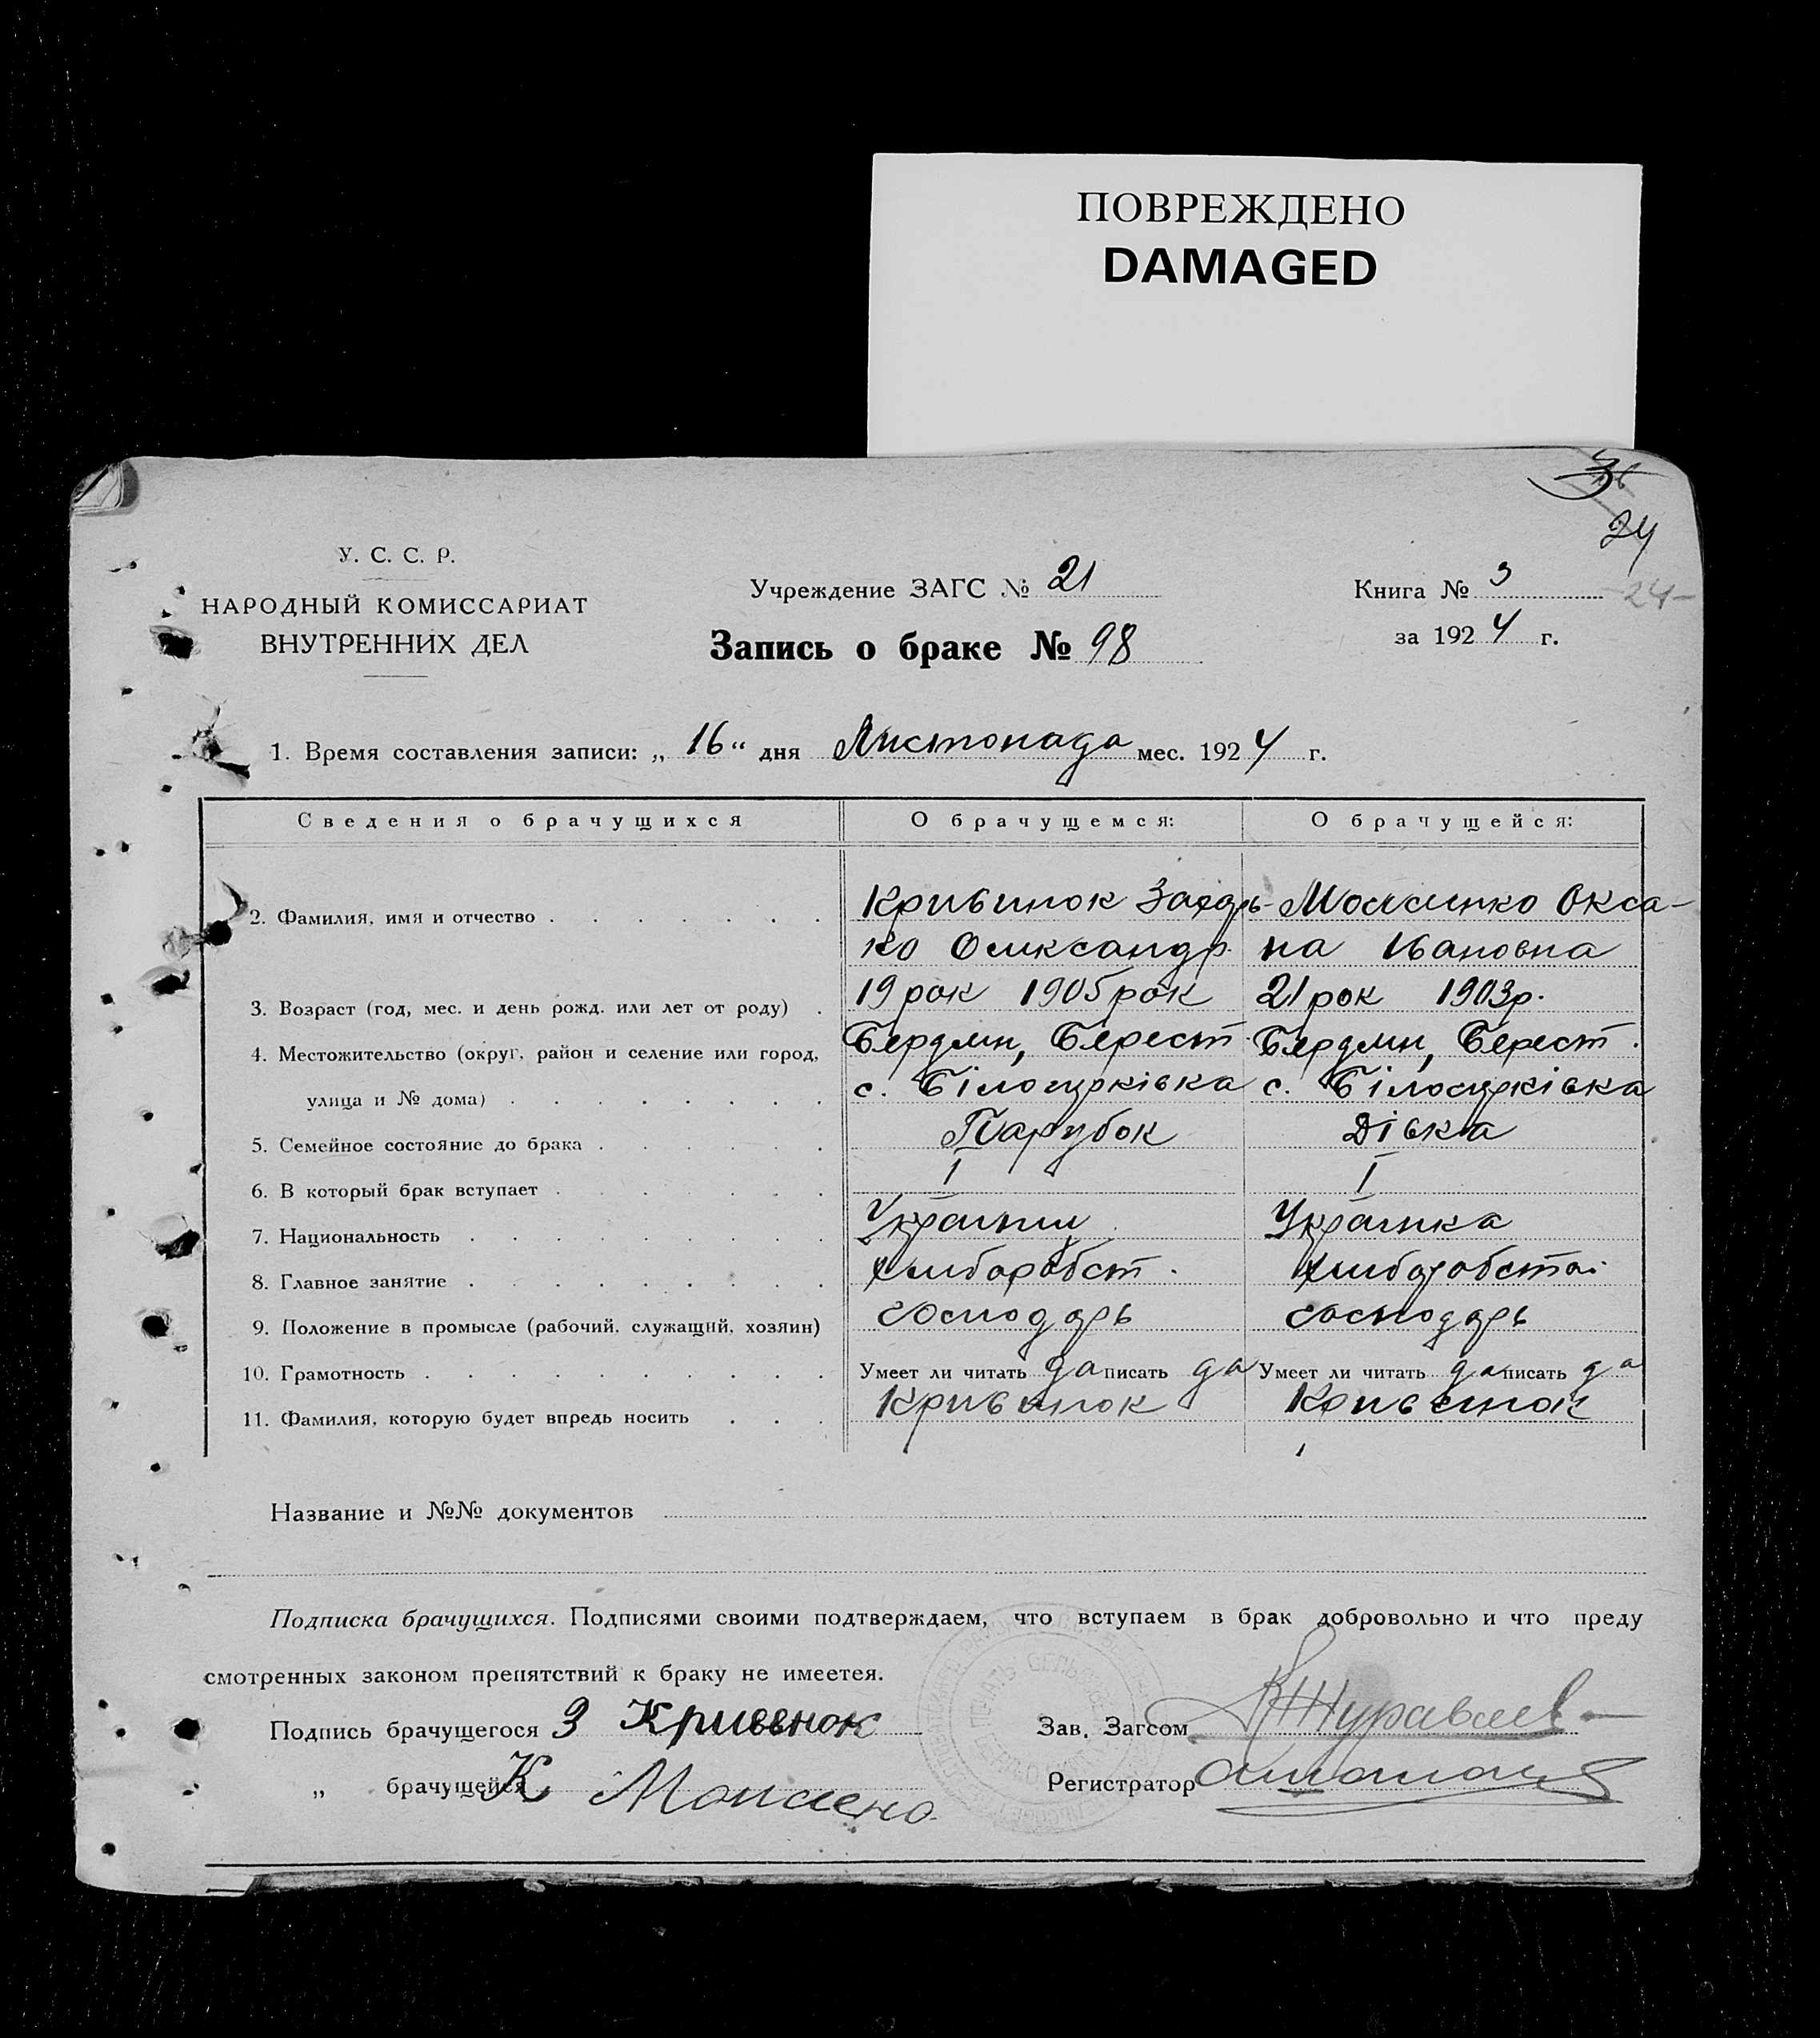 ПОВРЕЖДЕНО
DAMAGED
3
24
24-
У. С. С. Р.
НАРОДНЫЙ КОМИССАРИАТ
ВНУТРЕННИХ ДЕЛ
Учреждение ЗАГС № 21
Запись о браке № 98
Книга № 3
за 1924 г.
1. Время составления записи: „ 16 “ дня Листопада мес. 1924 г.
Сведения о брачущихся О брачущемся: О брачущейся:
2. Фамилия, имя и отчество Кривинок Захар- Оксa-
ко Олександр. на Івановна
3. Возраст (год, мес. и день рожд. или лет от роду) 19 рок 1905 рок 21 рок 1903 р.
4. Местожительство (округ, район и селение или город, Бердян, Берест. Бердян, Берест.
улица и № дома) с. Білоцрківка с. Білоцрківка
5. Семейное состояние до брака Парубок Дівка
6. В который брак вступает I I
7. Национальность Украинец Украинка
8. Главное занятие хлиборобст. хлиборобство.
9. Положение в промысле (рабочий, служащий, хозяин) Господарь Господарь
10. Грамотность Умеет ли читать да писать да Умеет ли читать да писать да
11. Фамилия, которую будет впредь носить Кривинок Кривинок
Название и №№ документов
Подписка брачущихся. Подписями своими подтверждаем, что вступаем в брак добровольно и что преду
смотренных законом препятствий к браку не имеется.
Подпись брачущегося З Кривенок Зав. Загсом Журавлев
„ брачущейся К Регистратор